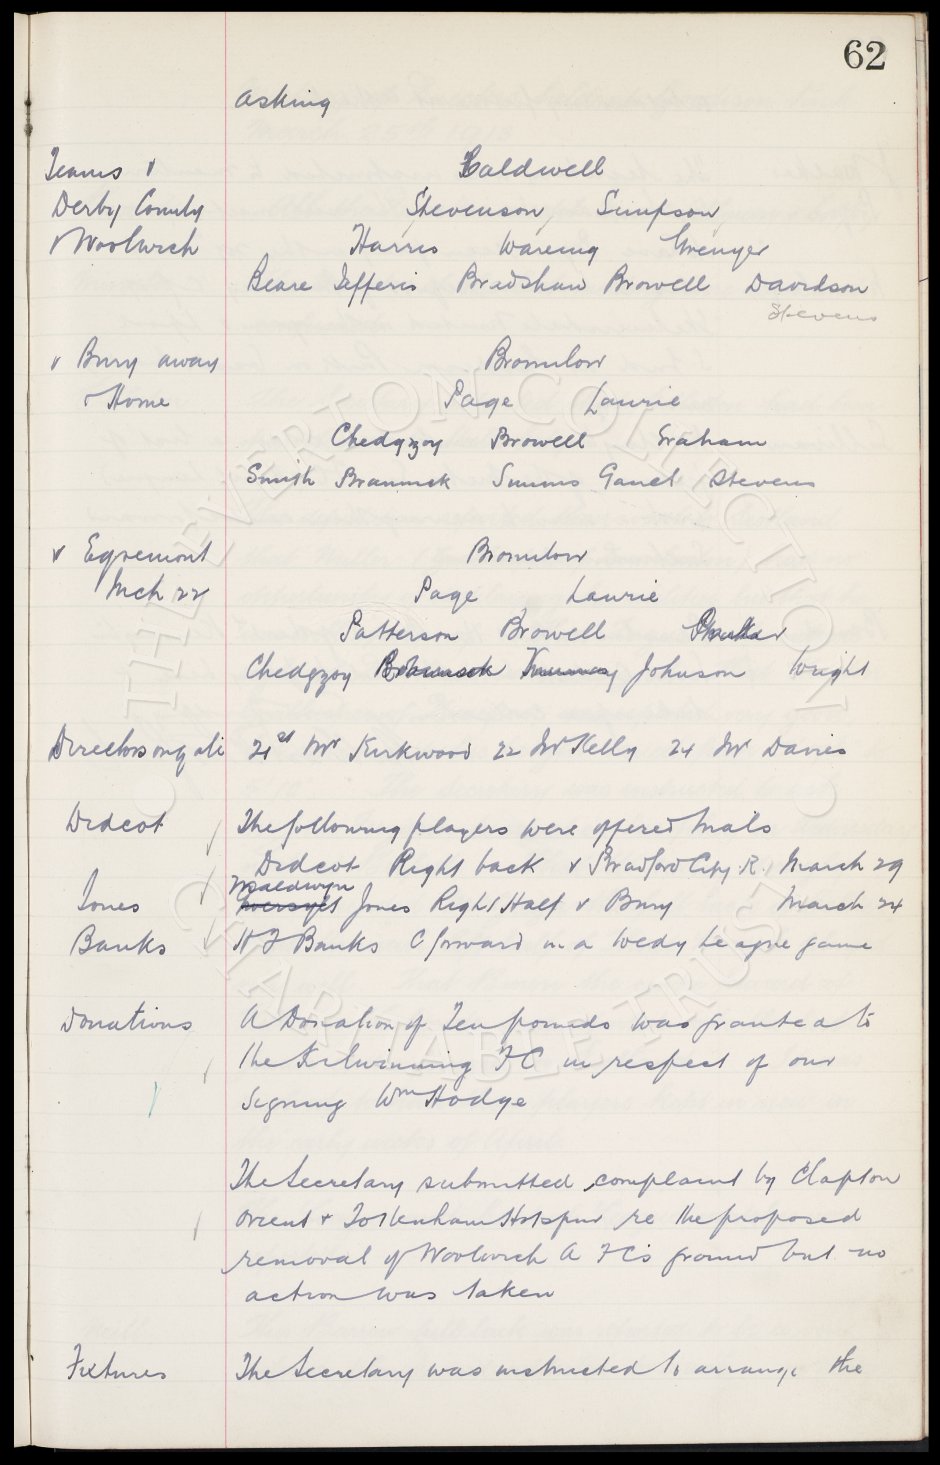 62
asking
Teams v Caldwell
Derby County Stevenson Simpson
v Woolwich Harris Wareing Grenyer
Beare Jefferis Bradshaw Browell Davidson
Stevens
v Bury away Bromilow
v Home Page Laurie
Chedgzoy Browell Graham
Smith Brannick Simms Gault Stevens
v Egremont Bromilow
Mch 22 Page Laurie
Patterson Browell
Chedgzoy Brannick Johnson Wright
Directors 21st Mr Kirkwood 22 Mr Kelly 24 Mr Davies
Didcot The following players were offered trials
Didcot Right back v Bradford City R. March 29
Baldwyn
Jones Jones Right Half v Bury March 24
Banks H F Banks C forward in a Wedy League game
Donations A Donation of Ten pounds was granted to
the Kilwinning F C in respect of our
signing Wm Hodge
The Secretary submitted complaint by Clapton
Orient & Tottenham Hotspur re the proposed
removal of Woolwich A FC's ground but no
action was taken
Fixtures The Secretary was instructed to arrange the
THE EVERTON COLLECTION
CHARITABLE TRUST